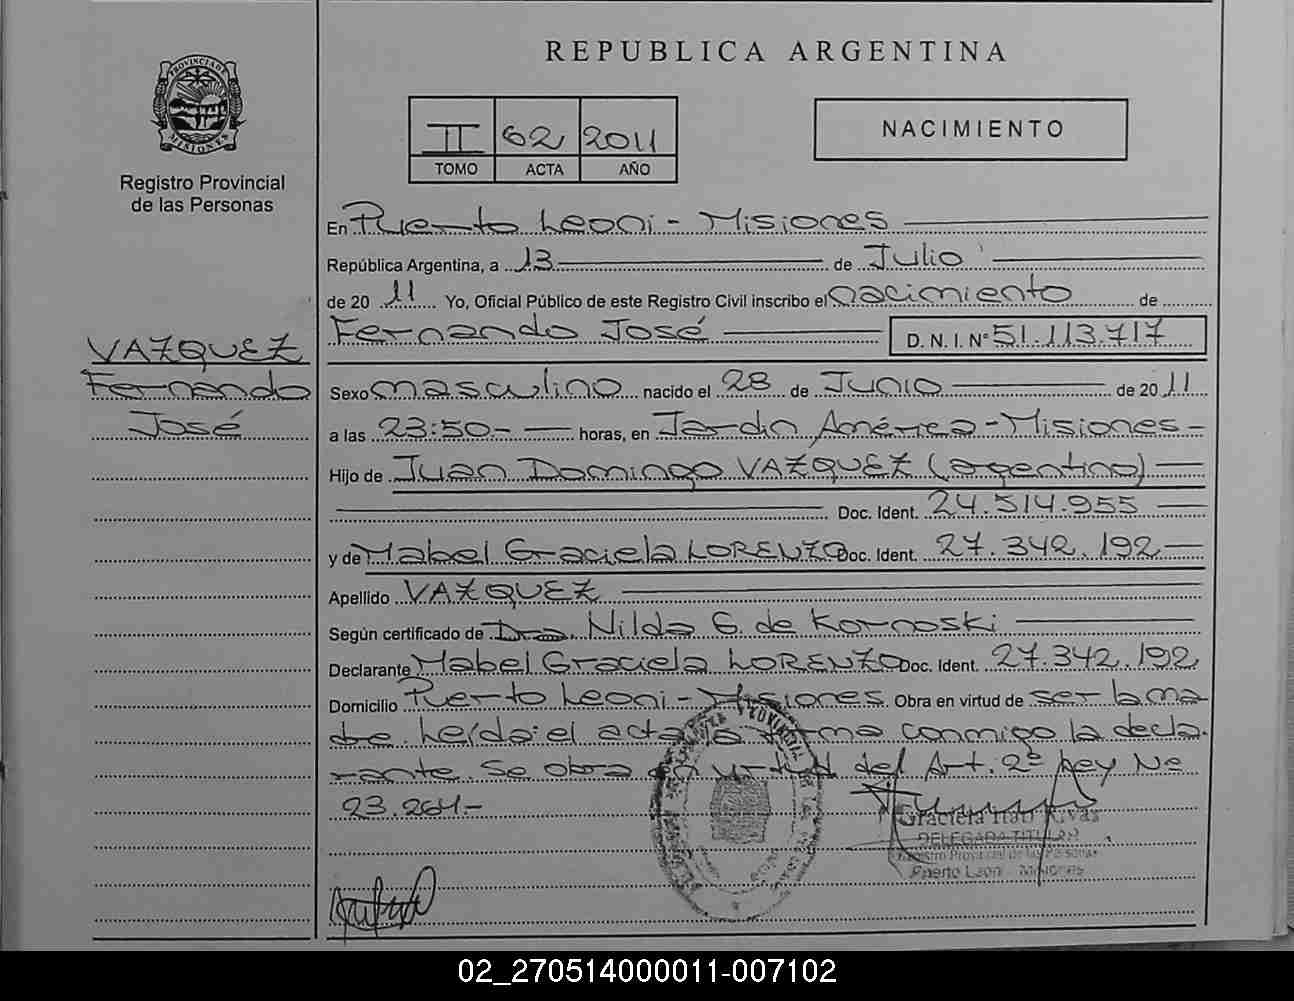 PROVINCIA DE
MISIONES
Registro Provincial
de las Personas
VAZQUEZ
Fernando
José
REPUBLICA ARGENTINA
II 62 2011
TOMO ACTA AÑO
NACIMIENTO
En Puerto Leoni - Misiones
República Argentina, a 13 de Julio
de 20 11 Yo, Oficial Público de este Registro Civil inscribo el nacimiento de
Fernando José D. N. I. N° 51.113.717
Sexo masculino nacido el 28 de Junio de 20 11
a las 23:50.- horas, en Jardin América - Misiones -
Hijo de Juan Domingo VAZQUEZ (argentino)
Doc. Ident. 24.514.955
y de Mabel Graciela LORENZO Doc. Ident. 27.342.192
Apellido VAZQUEZ
Según certificado de Dra. Nilda G. de Kornoski
Declarante Mabel Graciela LORENZO Doc. Ident. 27.342.192
Domicilio Puerto Leoni - Misiones Obra en virtud de ser la ma
dre. Leída el acta la firma conmigo la decla-
rante. Se obra en virtud del Art. 2º Ley Nº
23.264.-
Graciela Rivas
DELEGADA TITULAR
Registro Provincial de las Personas
Puerto Leoni - Misiones
02_270514000011-007102